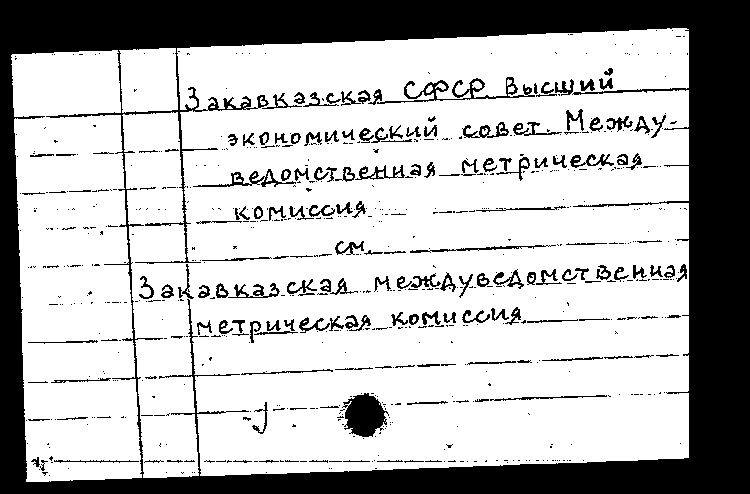 Закавказская СФСР. Высший
экономический совет. Между-
ведомственная метрическая
комиссия
см.
Закавказская междуведомственная
метрическая комиссия